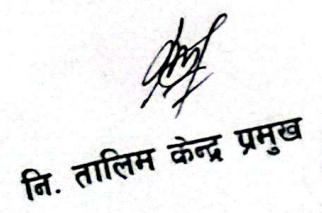 नि. तालिम केन्द्र प्रमुख